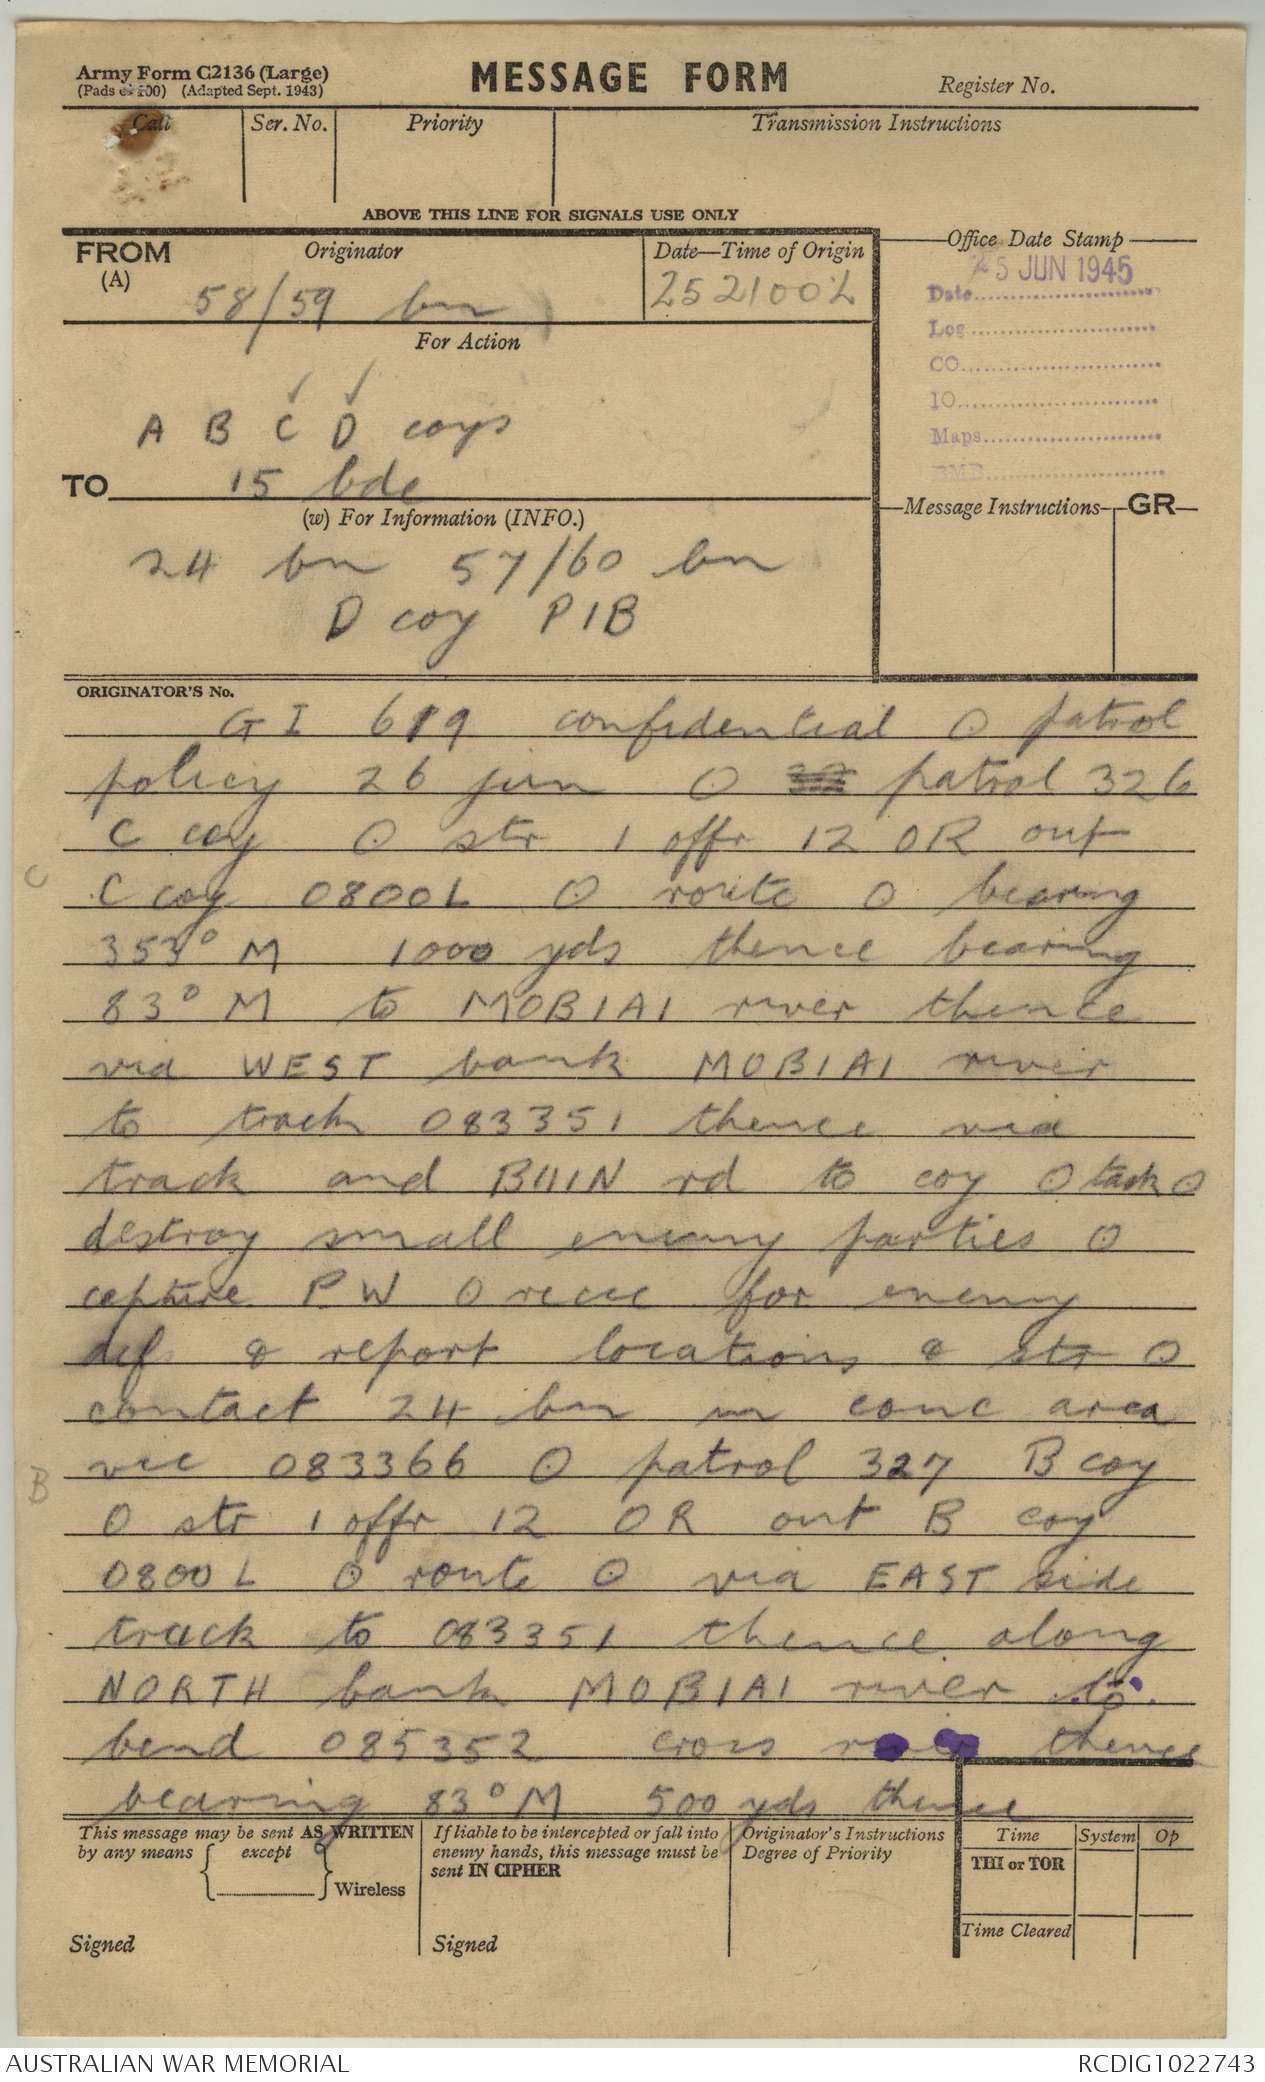 Army Form C2136 (Large)
(Pads of 100) (Adapted Sept. 1943)
MESSAGE FORM
Register No.
Call
Ser. No.
Priority
Transmission Instructions
ABOVE THIS LINE FOR SIGNALS USE ONLY
FROM
(A)
Originator
58/59 bn
Date—Time of Origin
252100L
Office Date Stamp
25 JUN 1945
Date
Log
CO
IO
Maps
For Action
A B C D coys
TO 15 bde
(w) For Information (INFO.)
24 bn 57/60 bn
D coy PIB
Message Instructions
GR
ORIGINATOR'S No.
GI 619 confidential O patrol
policy 26 jun O patrol 326
C coy O str 1 offr 12 OR out
C
C coy 0800L O route O bearing
353° M 1000 yds thence bearing
83° M to MOBIAI river thence
via WEST bank MOBIAI river
to track 083351 thence via
track and BUIN rd to coy O task O
destroy small enemy parties O
capture PW O recce for enemy
def & report locations & str O
contact 24 bn in conc area
vic 083366 O patrol 327 B coy
B
O str 1 offr 12 OR out B coy
0800L O route O via EAST side
track to 083351 thence along
NORTH bank MOBIAI river to
bend 085352 cross river thence
bearing 83° M 500 yds thence
This message may be sent AS WRITTEN
by any means except
Wireless
Signed
If liable to be intercepted or fall into
enemy hands, this message must be
sent IN CIPHER
Signed
Originator's Instructions
Degree of Priority
Time
System
Op
THI or TOR
Time Cleared
AUSTRALIAN WAR MEMORIAL
RCDIG1022743